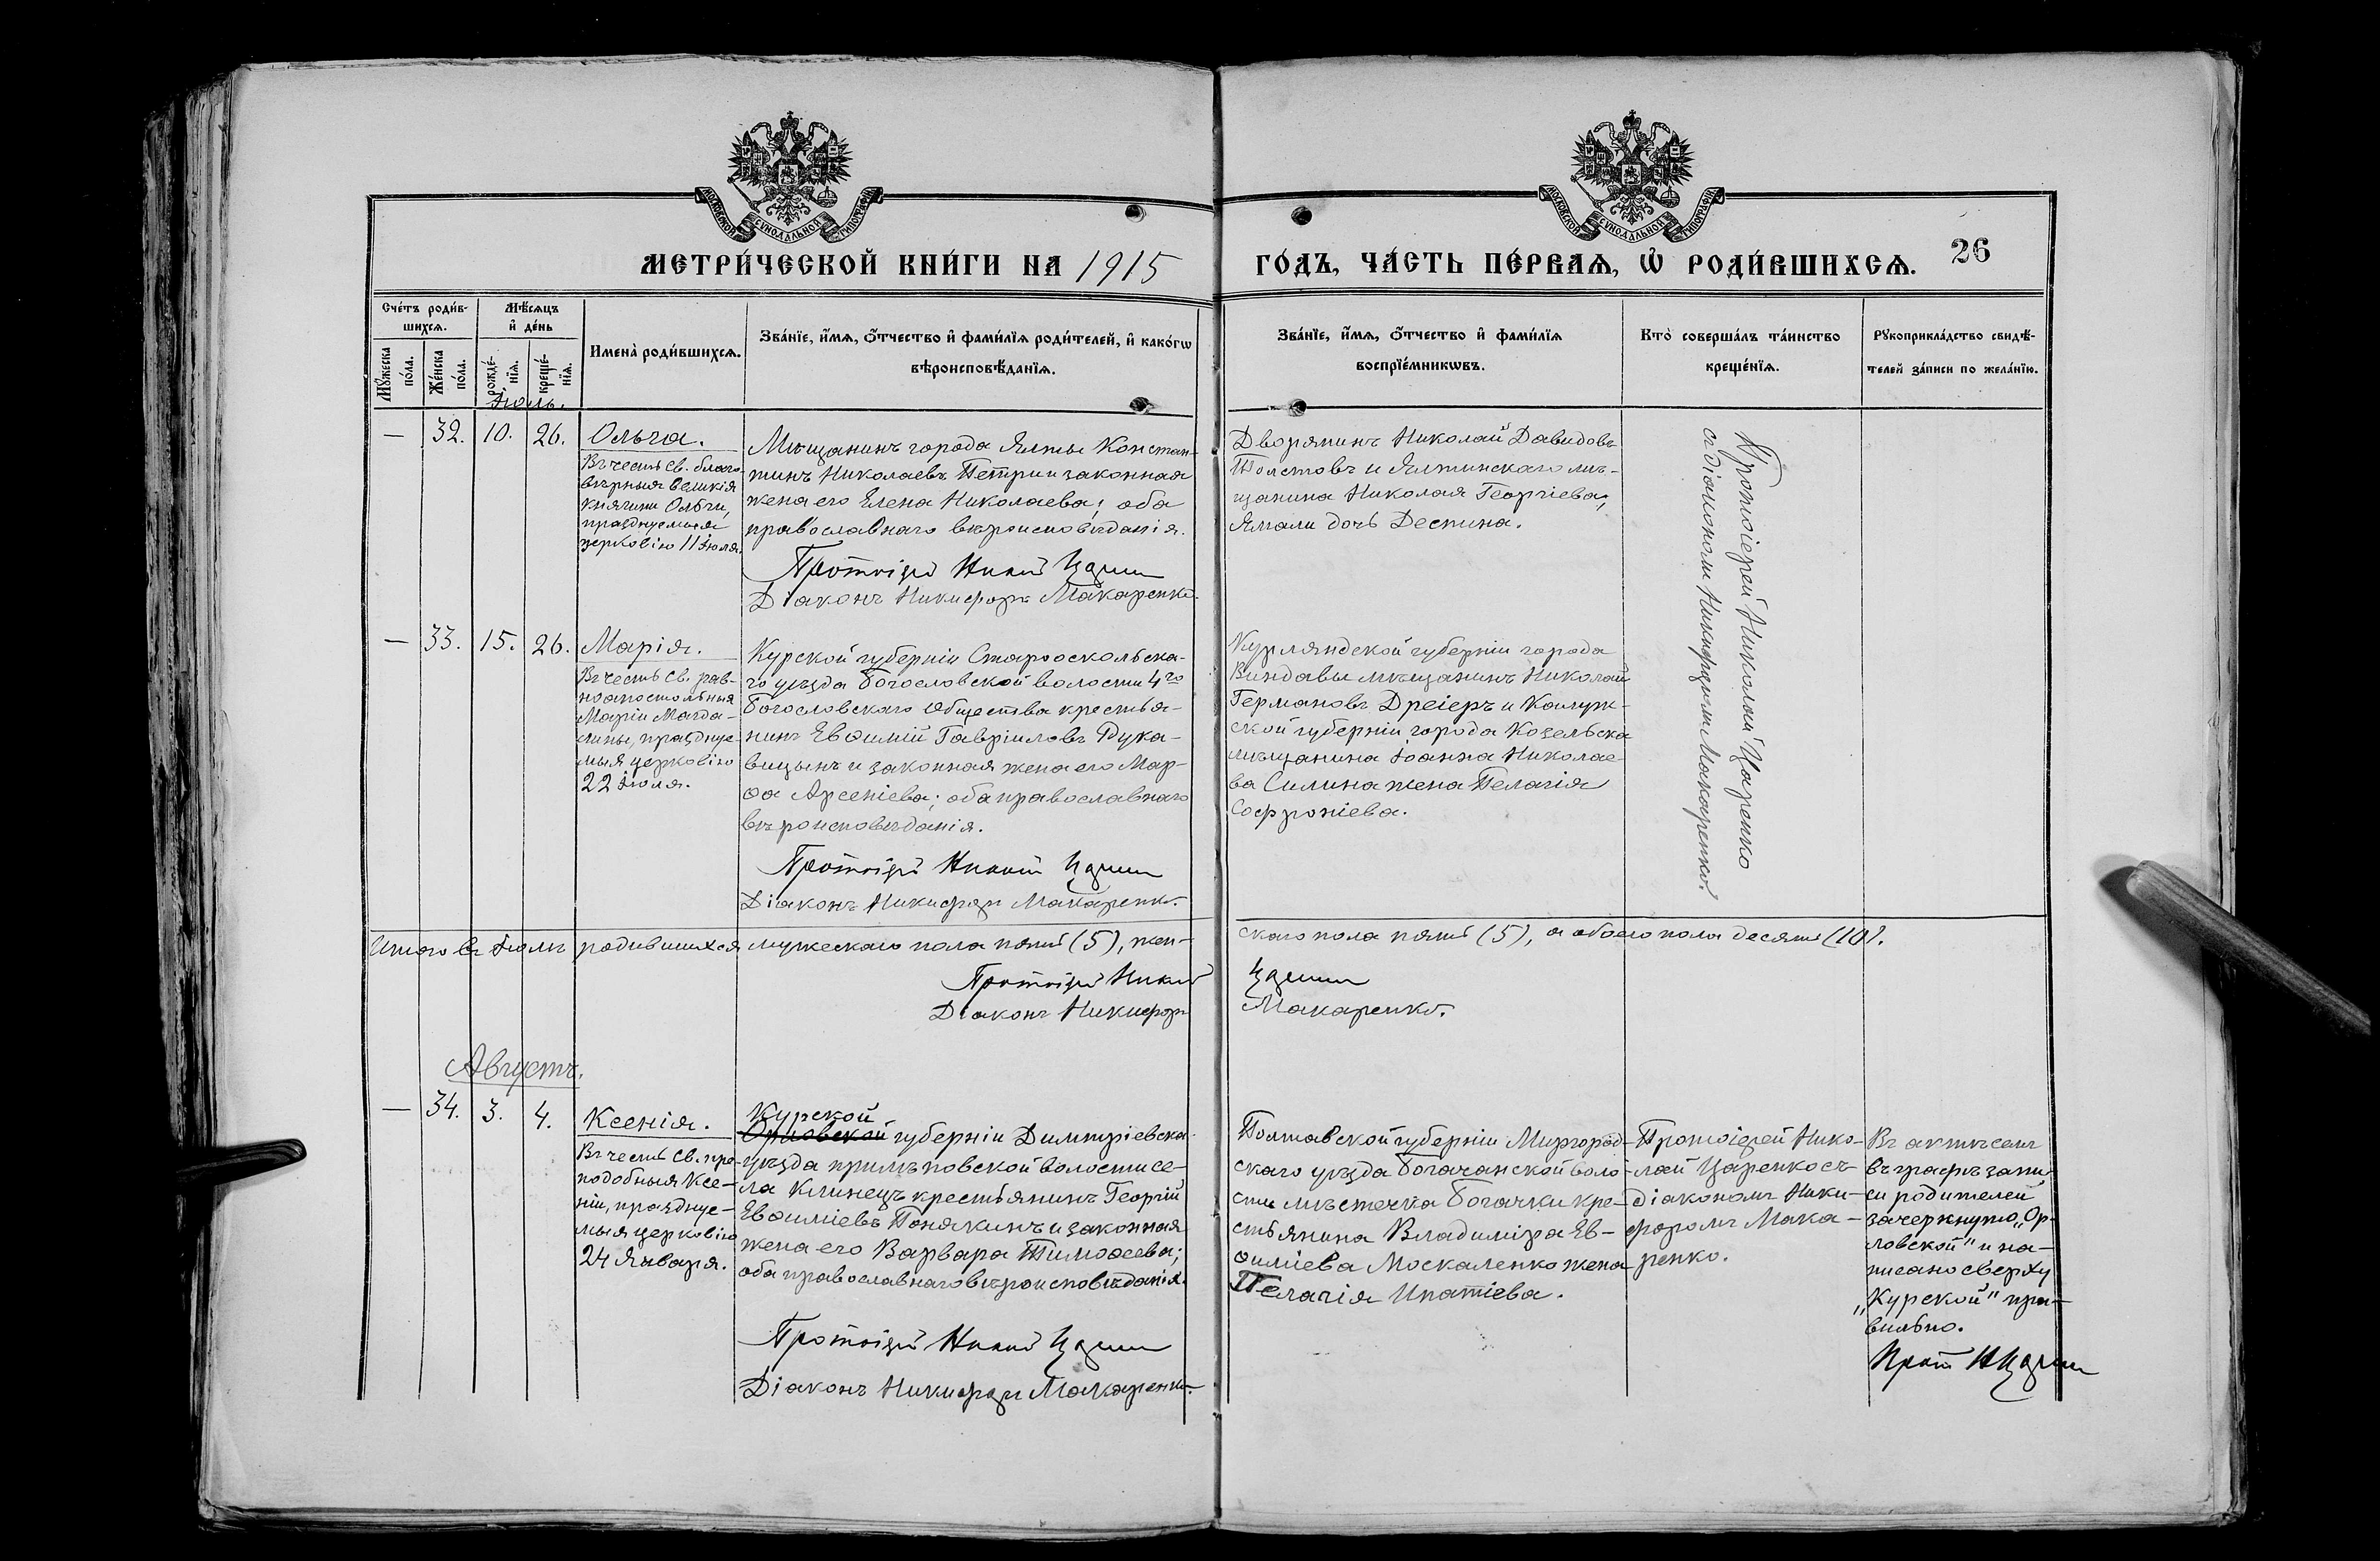 МОСКОВСКОЙ СѴНОДАЛЬНОЙ ТИПОГРАФІИ
МОСКОВСКОЙ СѴНОДАЛЬНОЙ ТИПОГРАФІИ
МЕТРИ́ЧЕСКОЙ КНИ́ГИ НА 1915
ГО́ДЪ, ЧА́СТЬ ПЕ́РВАѦ, Ѡ҆ РОДИ́ВШИХСѦ. 26
Сче́тъ роди́в-
шихсѧ.
Мꙋ́жеска
по́ла.
Же́нска
по́ла.
Мѣ́сѧцъ
и҆ де́нь
рожде́-
нїѧ.
креще́-
нїѧ.
Имена̀ роди́вшихсѧ.
Зва́нїе, и҆́мѧ, ѻ҆́тчество и҆ фами́лїѧ роди́телей, и҆ како́гѡ
вѣроисповѣ́данїѧ.
Зва́нїе, и҆́мѧ, ѻ҆́тчество и҆ фами́лїѧ
воспрїе́мникѡвъ.
Кто̀ соверша́лъ та́инство
креще́нїѧ.
Рꙋкоприкла́дство свидѣ́-
телей за́писи по жела́нїю.
Іюль.
— 32. 10. 26.
Ольга.
Въ честь св. благо-
вѣрныя великія
княгини Ольги,
празднуемыя
церковію 11 Іюля.
Мѣщанинъ города Ялты Констан-
тинъ Николаевъ Петри и законная
жена его Елена Николаева; оба
православнаго вѣроисповѣданія.
Протоіерей Николай Царенко
Діаконъ Никифоръ Макаренко.
Дворянинъ Николай Давидовъ
Толстовъ и Ялтинскаго мѣ-
щанина Николая Георгіева,
Ямали дочь Деспина.
Протоіерей Николай Царенко
съ діакономъ Никифоромъ Макаренко.
— 33. 15. 26.
Марія.
Въ честь св. рав-
ноапостольныя
Маріи Магда-
лины, праздуе-
мыя церковію
22 Іюля.
Курской губерніи Старооскольска-
го уѣзда Богословской волости 4го
Богословскаго Общества крестья-
нинъ Евѳимій Гавріиловъ Рука-
вицынъ и законная жена его Мар-
ѳа Арсеніева; оба православнаго
вѣроисповѣданія.
Протоіерей Николай Царенко
Діаконъ Никифоръ Макаренко.
Курляндской губерніи города
Виндавы мѣщанинъ Николай
Германовъ Дреіеръ и Калуж-
ской губерніи города Козельска
мѣщанина Іоанна Николае-
ва Силина жена Пелагія
Софроніева.
Итого въ Іюлѣ родившихся мужескаго пола пять (5), жен-
скаго пола пять (5), а обоего пола десять (10).
Протоіерей Николай Царенко
Діаконъ Никифоръ Макаренко.
Августъ.
— 34. 3. 4.
Ксенія.
Въ честь св. пре-
подобныя Ксе-
ніи, праздуе-
мыя церковію
24 Января.
Курской
Орловской губерніи Димитріевска-
уѣзда прилѣповской волости се-
ла Клинецъ крестьянинъ Георгій
Евѳиміевъ Понякинъ и законная
жена его Варвара Тимоѳеева;
оба православнаго вѣроисповѣданія.
Протоіерей Николай Царенко
Діаконъ Никифоръ Макаренко.
Полтавской губерніи Миргород-
скаго уѣзда Богачанской воло-
сти мѣстечка Богачки кре-
стьянина Владиміра Ев-
ѳиміева Москаленко жена
Пелагія Ипатіева.
Протоіерей Нико-
лай Царенко съ
діакономъ Ники-
форомъ Мака-
ренко.
Въ актѣ семъ
въ графѣ запи-
си родителей
зачеркнуто „Ор-
ловской" и на-
писано сверху
„Курской" пра-
вильно.
Прот Н Царенко